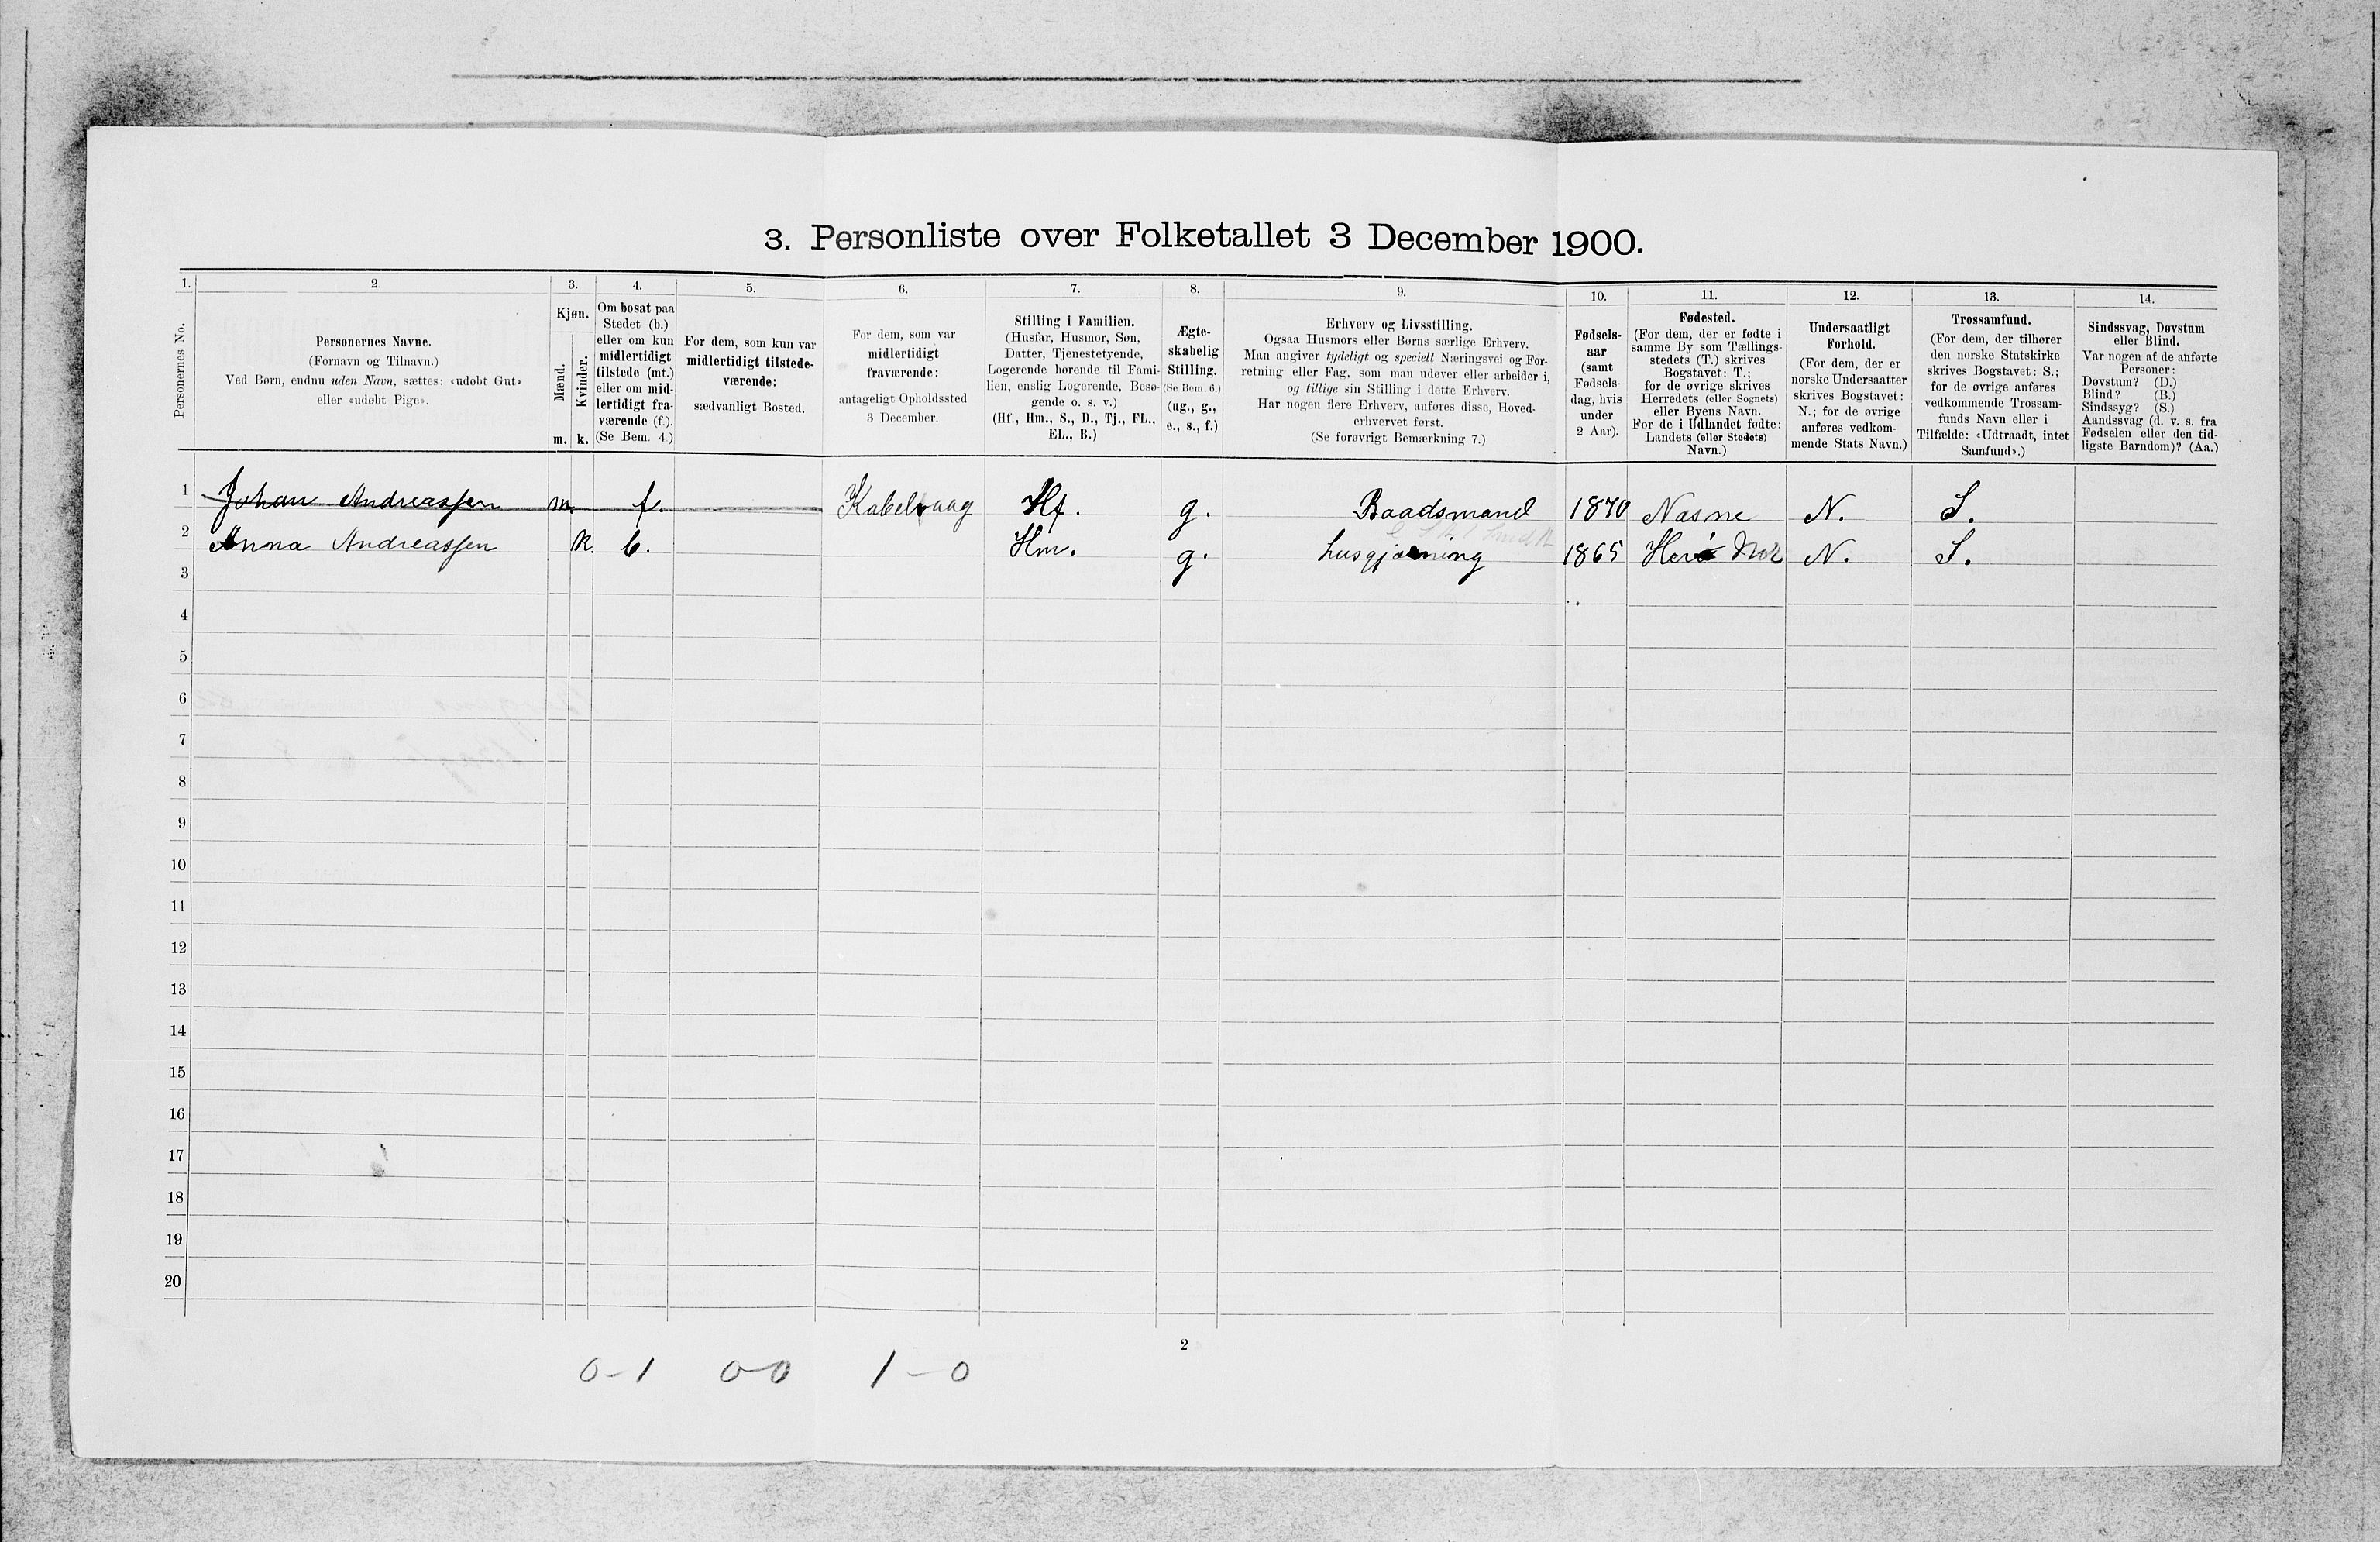 3. Personliste over Folketallet 3 December 1900.
1. 2 3. 4. 5. 6. 7. 8. 9. 10. 11. 12. 13. 14.
Personernes No.
Personernes Navne.
(Fornavn og Tilnavn.)
Ved Børn, endnu uden Navn, sættes: «udøbt Gut»
eller «udøbt Pige».
Kjøn.
Mænd.
Kvinder.
m. k.
Om bosat paa
Stedet (b.)
eller om kun
midlertidigt
tilstede (mt.)
eller om mid-
lertidigt fra-
værende (f.).
(Se Bem. 4.)
For dem, som kun var
midlertidigt tilstede-
værende:
sædvanligt Bosted.
For dem, som var
midlertidigt
fraværende:
antageligt Opholdssted
3 December.
Stilling i Familien.
(Husfar, Husmor, Søn,
Datter, Tjenestetyende,
Logerende hørende til Fami-
lien, enslig Logerende, Besø-
gende o. s. v.)
(Hf., Hm., S., D., Tj., FL.,
EL., B.)
Ægte-
skabelig
Stilling.
(Se Bem. 6.)
(ug., g.,
e., s., f.)
Erhverv og Livsstilling.
Ogsaa Husmors eller Børns særlige Erhverv.
Man angiver tydeligt og specielt Næringsvei og For-
retning eller Fag, som man udøver eller arbeider i,
og tillige sin Stilling i dette Erhverv.
Har nogen flere Erhverv, anføres disse, Hoved-
erhvervet først.
(Se forøvrigt Bemærkning 7.)
Fødsels-
aar
(samt
Fødsels-
dag, hvis
under
2 Aar).
Fødested.
(For dem, der er fødte i
samme By som Tællings-
stedets (T.) skrives
Bogstavet: T.;
for de øvrige skrives
Herredets (eller Sognets)
eller Byens Navn.
For de i Udlandet fødte:
Landets (eller Stedets)
Navn.)
Undersaatligt
Forhold.
(For dem, der er
norske Undersaatter
skrives Bogstavet:
N.; for de øvrige
anføres vedkom-
mende Stats Navn.)
Trossamfund.
(For dem, der tilhører
den norske Statskirke
skrives Bogstavet: S.;
for de øvrige anføres
vedkommende Trossam-
funds Navn eller i
Tilfælde: «Udtraadt, intet
Samfund».)
Sindssvag, Døvstum
eller Blind.
Var nogen af de anførte
Personer:
Døvstum? (D.)
Blind? (B.)
Sindssyg? (S.)
Aandssvag (d. v. s. fra
Fødselen eller den tid-
ligste Barndom)? (Aa.)
1 Johan Andreassen m. f. Kabelvaag Hf. g. Baadsmand 1870 Nasne N. S.
2 Anna Andreassen k. b. Hm. g. husgjærning 1865 Herø N. S.
3
4
5
6
7
8
9
10
11
12
13
14
15
16
17
18
19
20
2
0-1 0-0 1-0